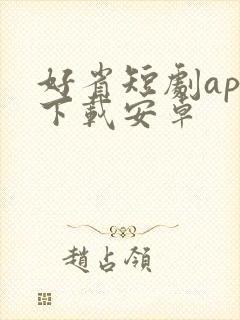 好省短劇ap
下載安卓
趙占領